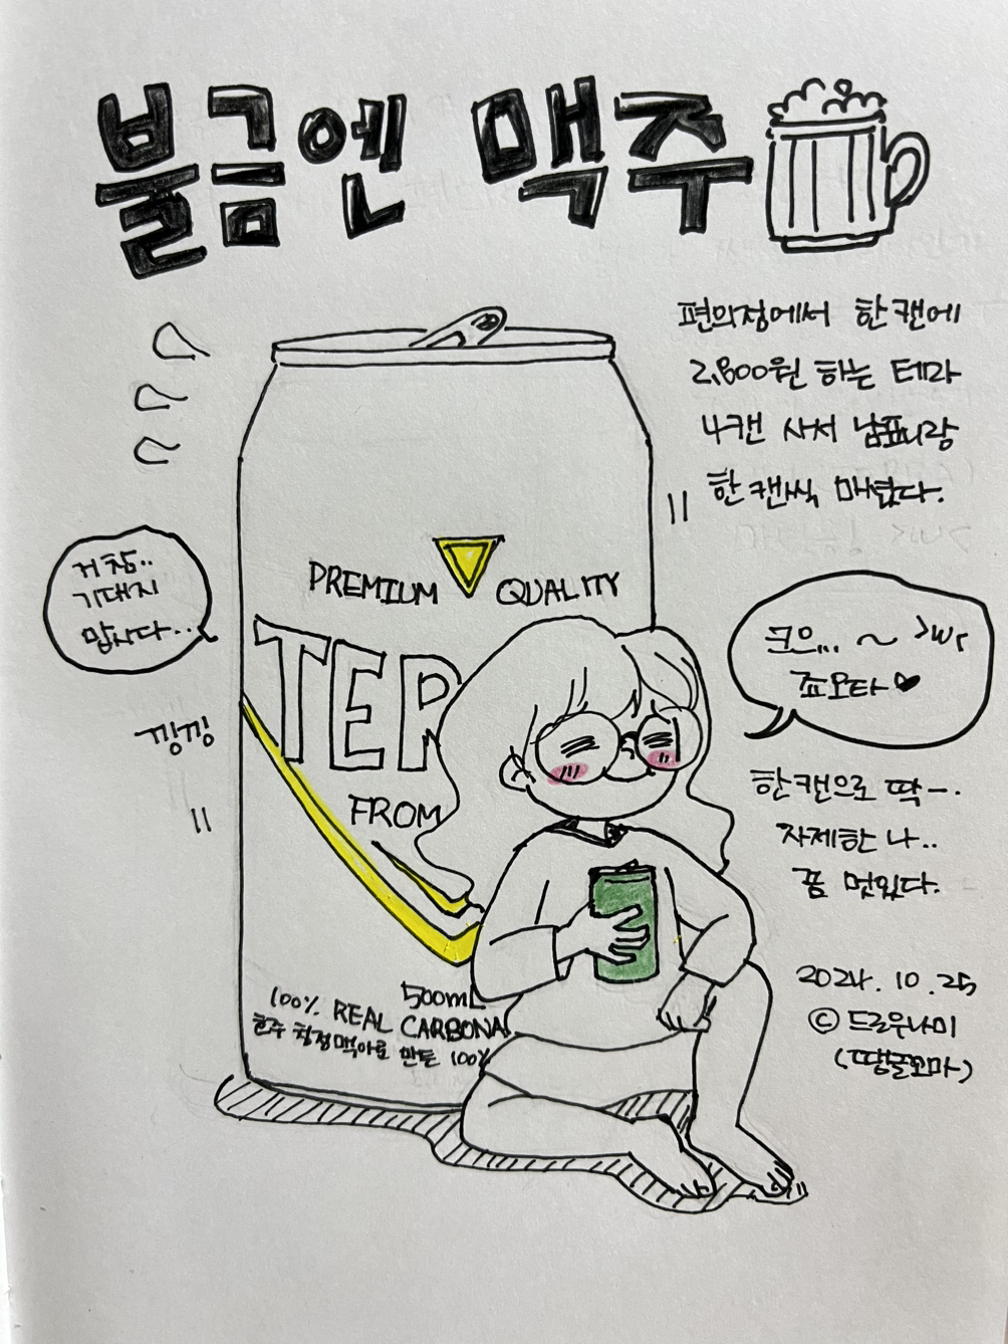 불금엔 맥주
편의점에서 한 캔에
2,800원 하는 테라
4캔 사서 남표니랑
한 캔씩 마셨다.
거 참..
기대지
맙시다...
낑낑
PREMIUM QUALITY
TER
FROM
500mL
100% REAL CARBONA
호주 청정맥아로 만든 100%
크으... ~ >w<
죠오타♥
한 캔으로 딱-.
자제한 나..
쫌 멋있다.
2024. 10. 25
© 드로우나미
(땅꼴꼬마)